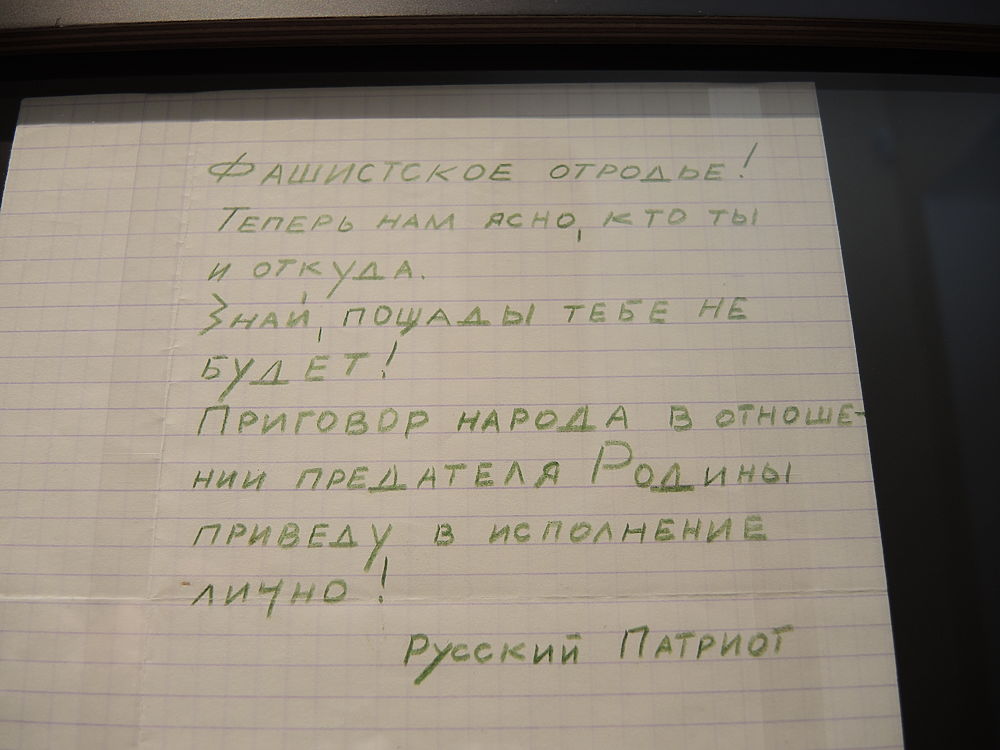 Фашистское отродье!
Теперь нам ясно, кто ты
и откуда.
Знай, пощады тебе не
будет!
Приговор народа в отноше-
нии предателя Родины
приведу в исполнение
лично!
Русский Патриот